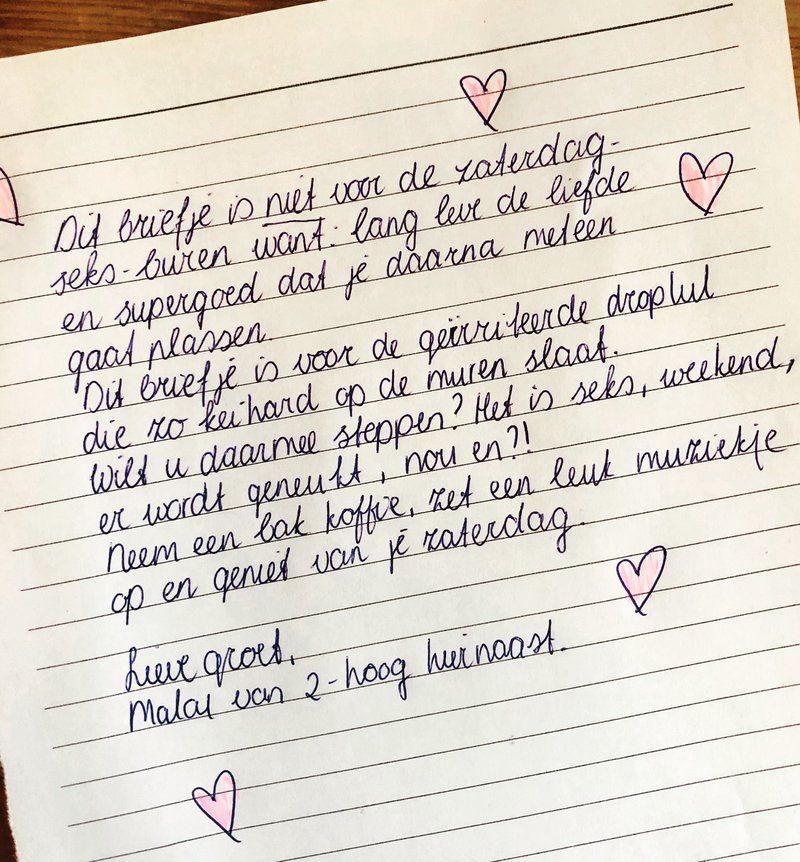 Dit briefje is niet voor de zaterdag-
seks-buren want: lang leve de liefde
en supergoed dat je daarna meteen
gaat plassen.
Dit briefje is voor de geïrriteerde droplul
die zo keihard op de muren slaat.
Wilt u daarmee stoppen? Het is seks, weekend,
er wordt geneukt, nou en?!
Neem een bak koffie, zet een leuk muziekje
op en geniet van je zaterdag.
Lieve groet,
van 2-hoog hiernaast.